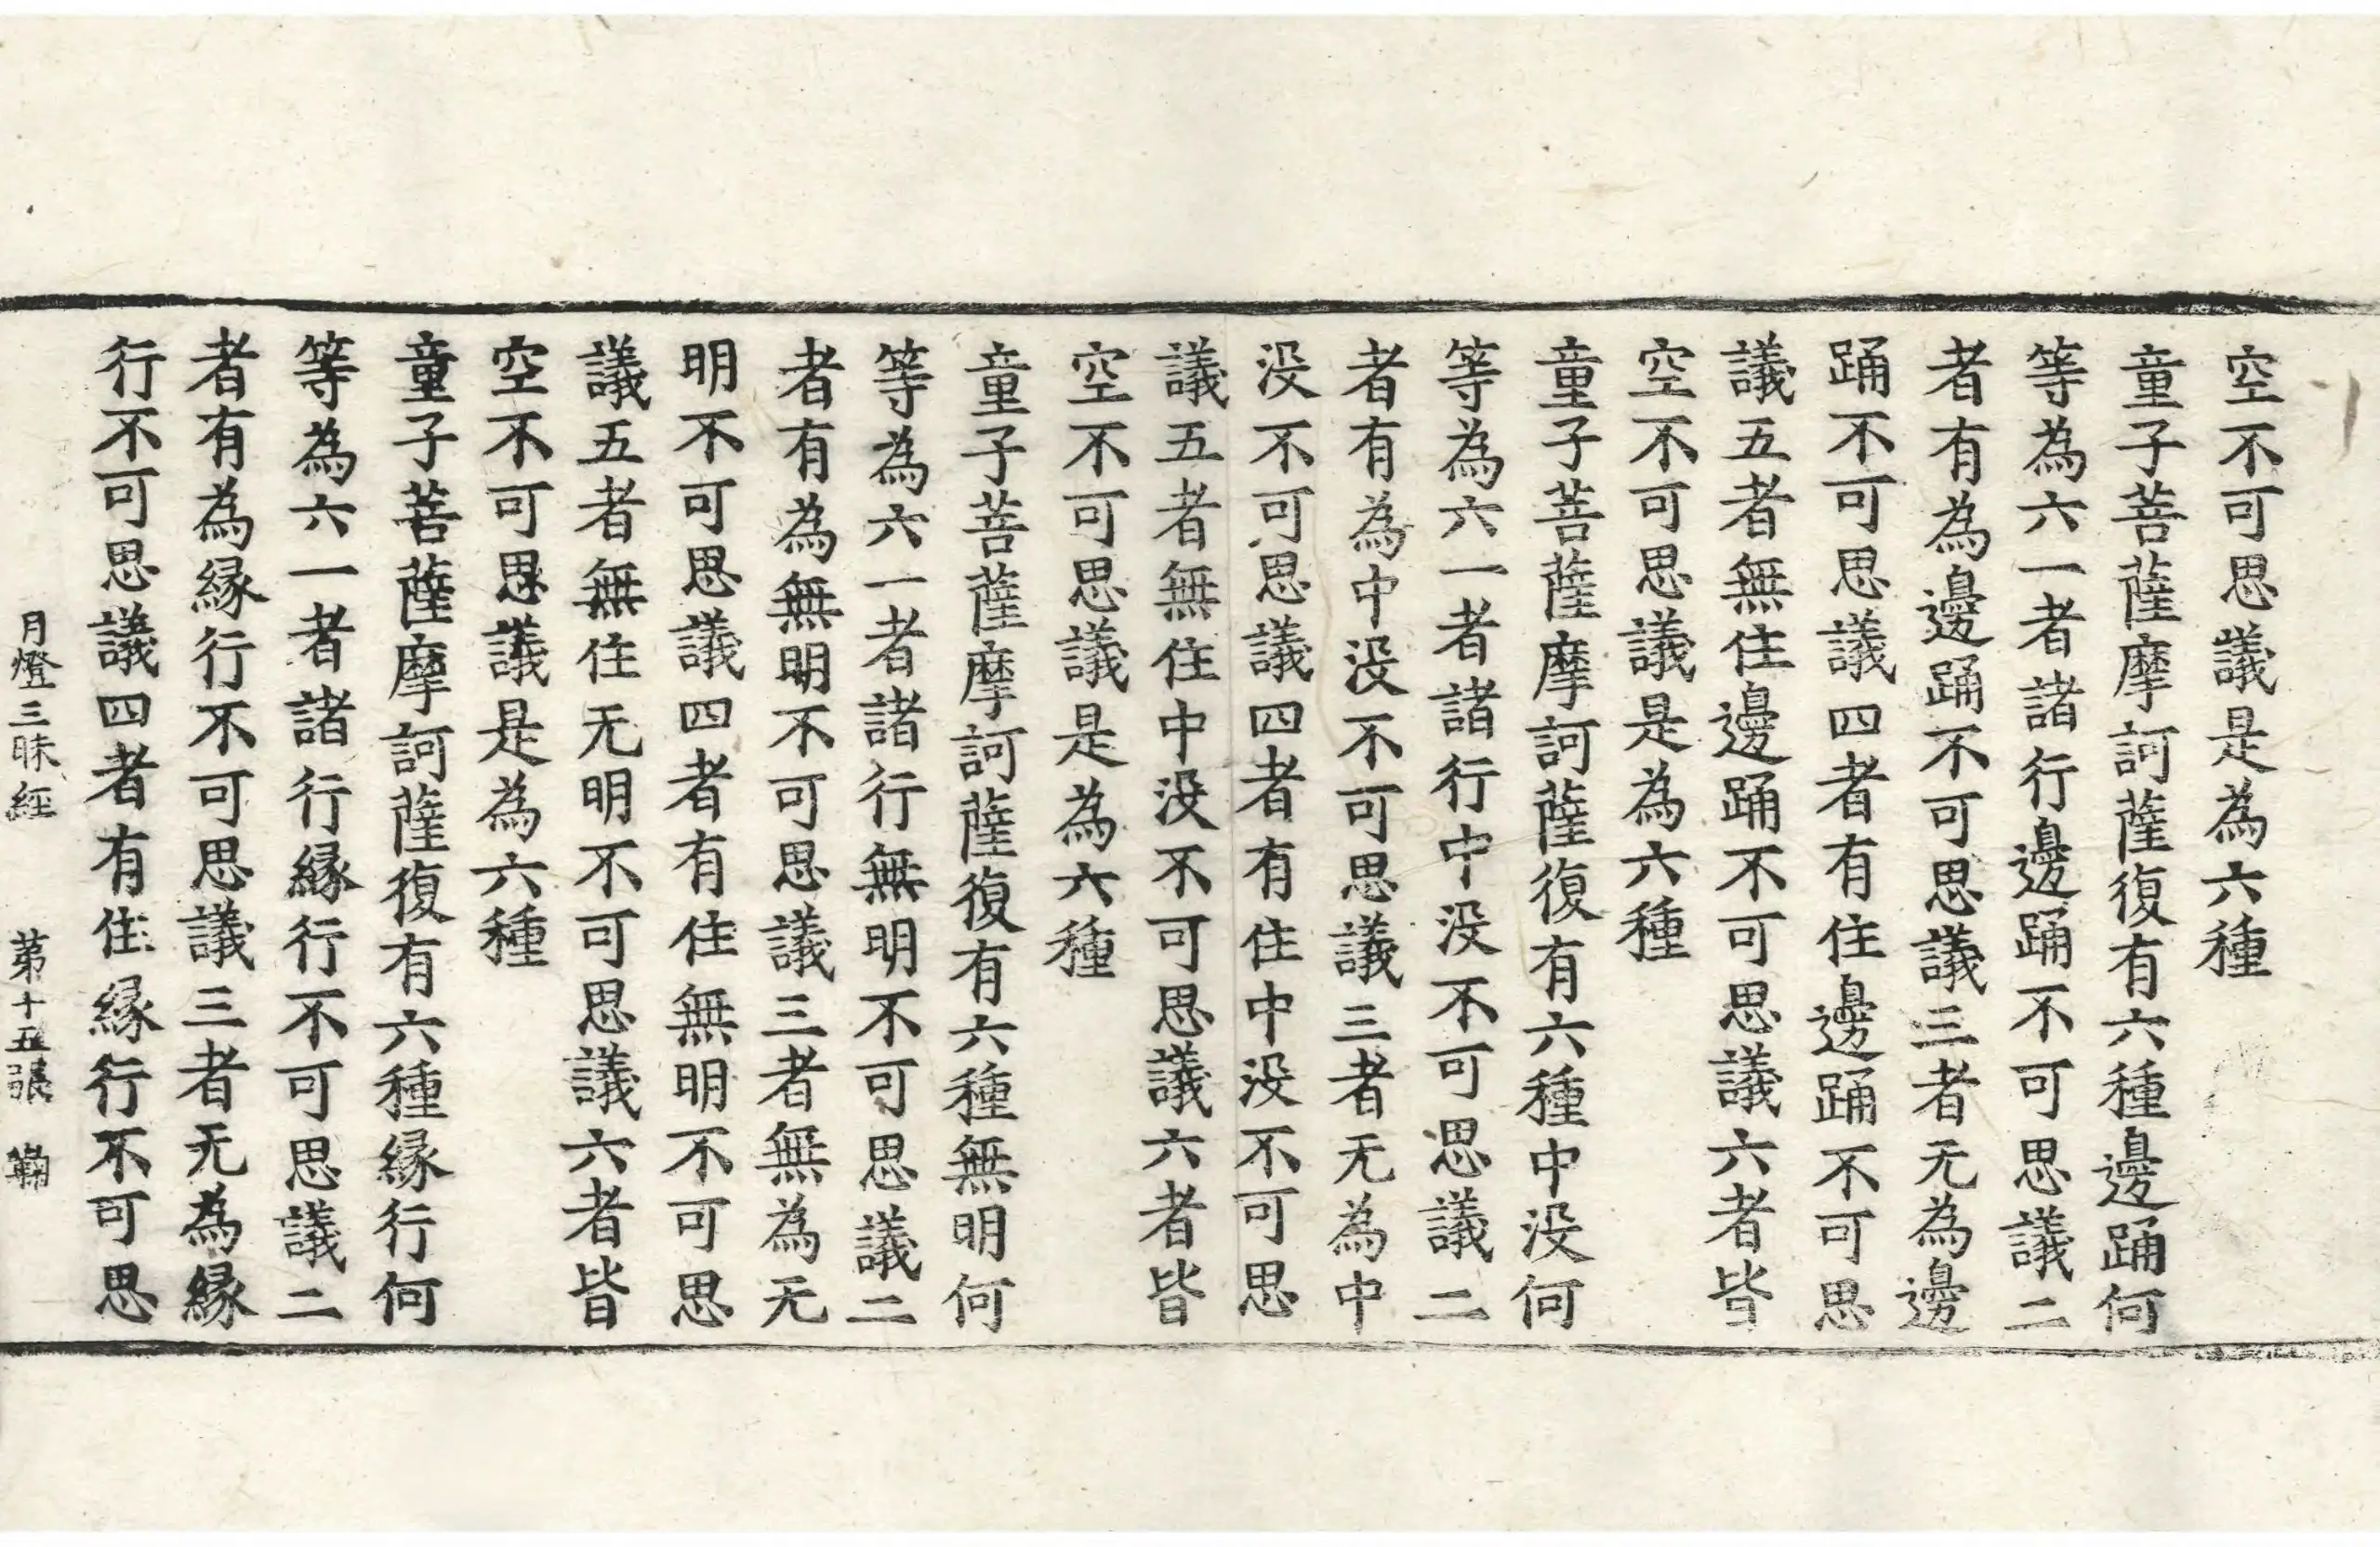 空不可思議是為六種
童子菩薩摩訶薩復有六種邊踊何
等為六一者諸行邊踊不可思議二
者有為邊踊不可思議三者无為邊
踊不可思議四者有住邊踊不可思
議五者無住邊踊不可思議六者皆
空不可思議是為六種
童子菩薩摩訶薩復有六種中没何
等為六一者諸行中没不可思議二
者有為中没不可思議三者无為中
没不可思議四者有住中没不可思
議五者無住中没不可思議六者皆
空不可思議是為六種
童子菩薩摩訶薩復有六種無明何
等為六一者諸行無明不可思議二
者有為無明不可思議三者無為无
明不可思議四者有住無明不可思
議五者無住无明不可思議六者皆
空不可思議是為六種
童子菩薩摩訶薩復有六種緣行何
等為六一者諸行緣行不可思議二
者有為緣行不可思議三者无為緣
行不可思議四者有住緣行不可思
月燈三昧經 第十五張